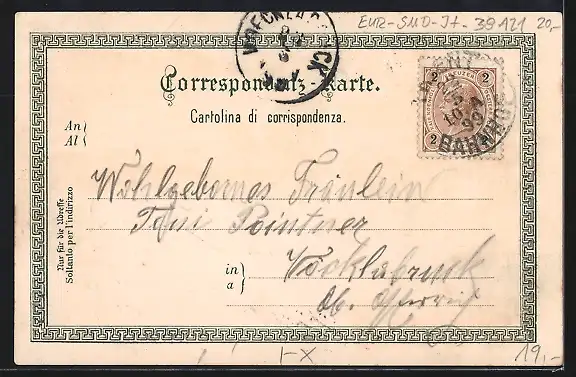 EUR-SUD-Jt- 39121 20,-
Correspondenz-Karte.
Cartolina di corrispondenza.
2 KREUZER 2
2
BAHNHOF
99
An
Al
Nur für die Adresse
Soltanto per l'indirizzo
Wohlgebornes Fräulein
Toni Pointner
in
a
Vöcklabruck
Ob.
+X
19,-